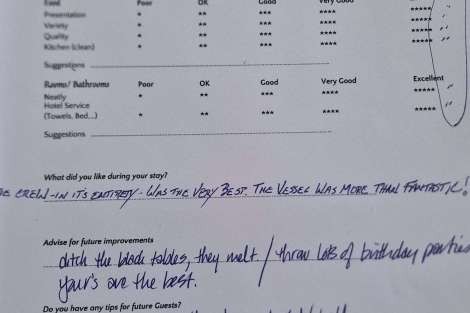 Food Poor OK Good Very Good
Presentation * ** *** **** *****
Variety * ** *** **** *****
Quality * ** *** **** *****
Kitchen (clean) * ** *** **** *****
Suggestions
Rooms/ Bathrooms Poor OK Good Very Good Excellent
Neatly * ** *** **** *****
Hotel Service
(Towels, Bed...) * ** *** **** *****
Suggestions
What did you like during your stay?
CREW - IN ITS ENTIRETY - WAS THE VERY BEST. THE VESSEL WAS MORE THAN FANTASTIC!
Advise for future improvements
ditch the black tables, they melt / throw lots of birthday parties
your's are the best.
Do you have any tips for future Guests?